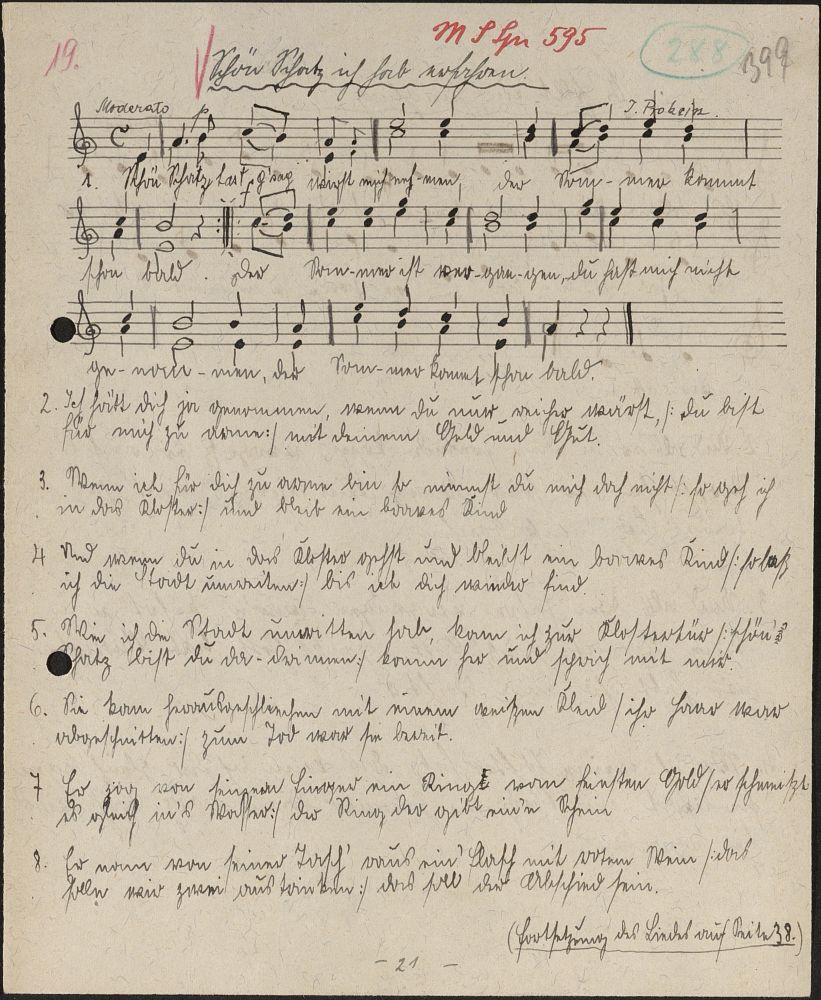 M S Gu 595
19.
288
399
Schön Schatz ich hab erfahren.
Moderato
1. Schön Schatz hast g'sagt wirst mich neh-men, der Som-mer kommt
schon bald. Der Som-mer ist ver-gan-gen, du hast mich nicht
ge-nom-men, der Som-mer kommt schon bald.
2. Ich hätt dich ja genommen, wenn du nur reicher wärst, /: du bist
für mich zu arm :/ mit deinem Geld und Gut.
3. Wenn ich für dich zu arm bin so nimmst du mich doch nicht /: so geh ich
in das Kloster :/ und bleib ein braves Kind
4 Und wenn du in das Kloster gehst und bleibst ein braves Kind /: so laß
ich die Stadt umreiten :/ bis ich dich wieder find.
5. Wie ich die Stadt umritten hab, kam ich zur Klostertür /: schön's
Schatz bist du da-drinnen :/ komm her und sprich mit mir.
6. Sie kam herausgeschliechen mit einem weißen Kleid / ihr Haar war
abgeschnitten :/ zum Tod war sie bereit.
7 Er zog von seinem Finger ein Ring vom feinsten Gold / er schmeitzt
es gleich in's Wasser :/ der Ring der gibt ein'n Schein
8. Er nam von seiner Tasch' raus ein' Flasch mit rotem Wein /: das
solln wir zwei austrinken :/ das soll der Abschied sein.
(Fortsetzung des Liedes auf Seite 38.)
- 21 -